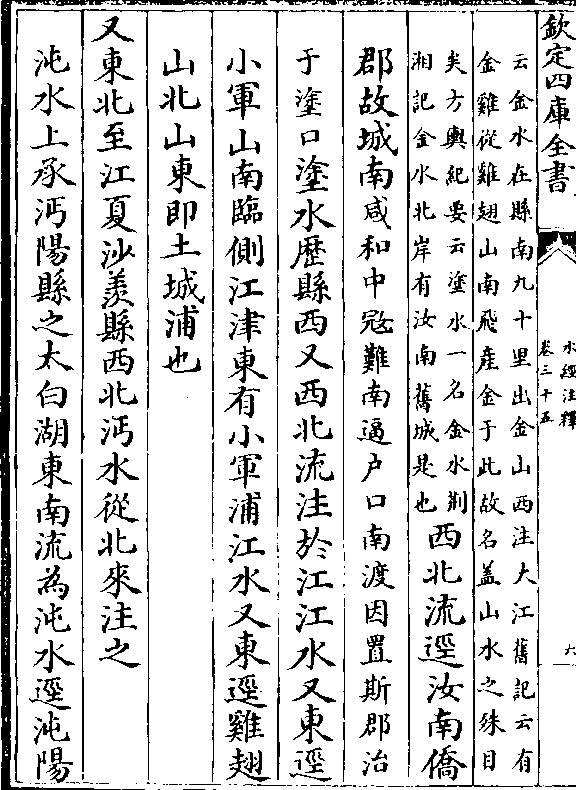 欽定四庫全書
水經注釋
卷三十五
六
云金水在縣南九十里出金山西注大江舊記云有
金雞從雞翅山南飛產金于此故名蓋山水之殊目
矣方輿紀要云塗水一名金水荆
湘記金水北岸有汝南舊城是也西北流逕汝南僑
郡故城南咸和中寇難南逼户口南渡因置斯郡治
于塗口塗水歷縣西又西北流注於江江水又東逕
小軍山南臨側江津東有小軍浦江水又東逕雞翅
山北山東即土城浦也
又東北至江夏沙羡縣西北沔水從北來注之
沌水上承沔陽縣之太白湖東南流為沌水逕沌陽